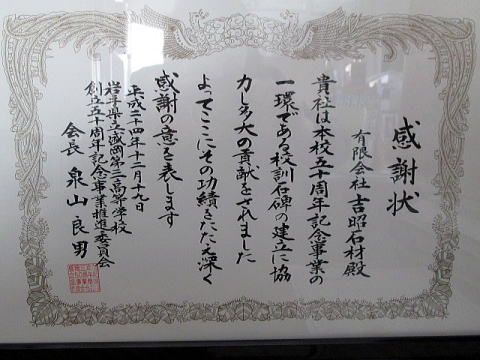 感謝状
有限会社 吉昭石材殿
貴社は本校五十周年記念事業の
一環である校訓石碑の建立に協
力し多大の貢献をされました
よってここにその功績をたたえ深く
感謝の意を表します
平成二十四年十二月十九日
岩手県立盛岡第三高等学校
創立五十周年記念事業推進委員会
会長 泉山良男